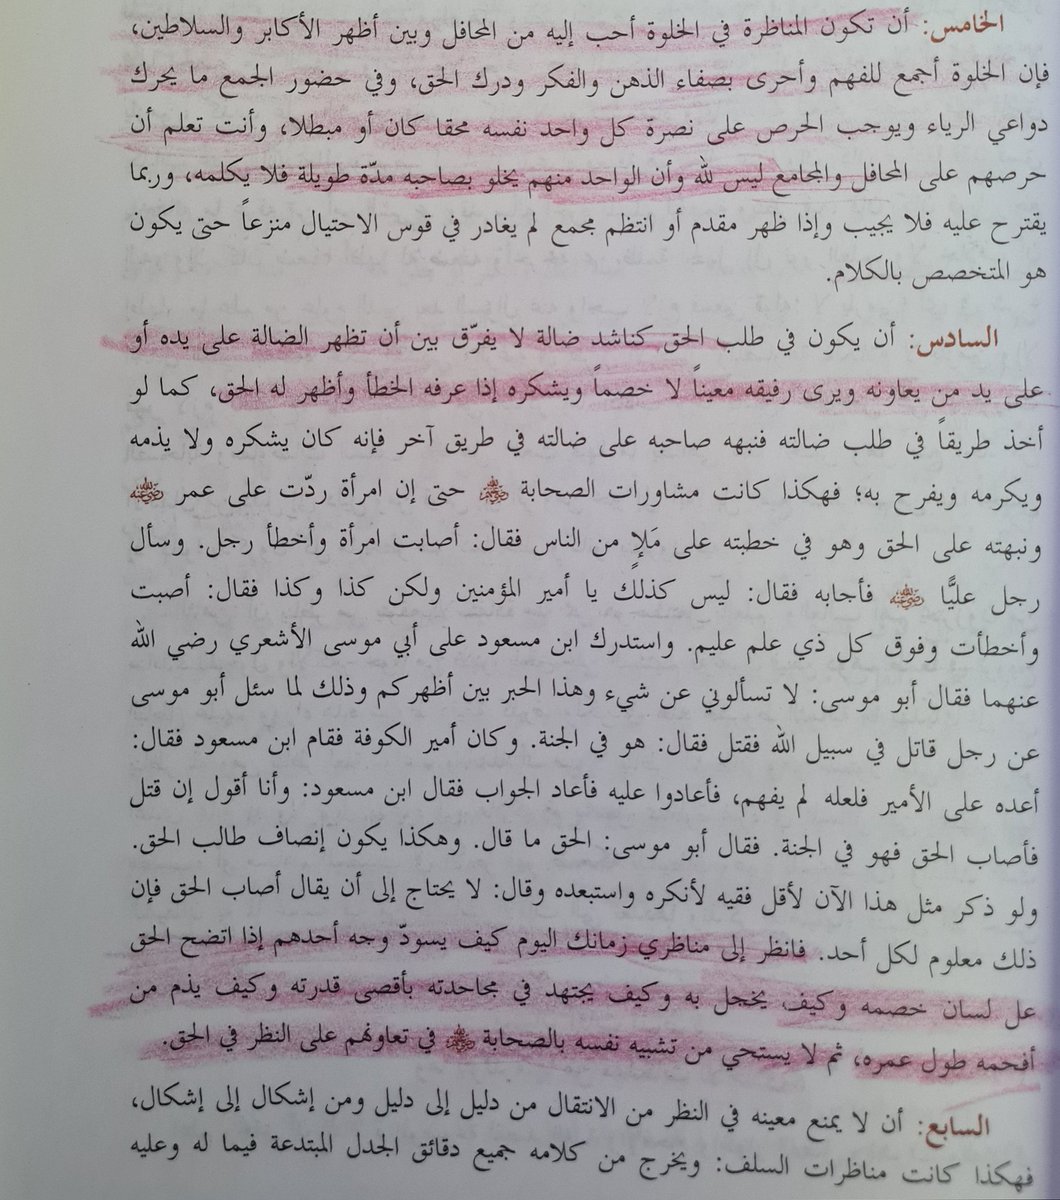 الخامس: أن تكون المناظرة في الخلوة أحب إليه من المحافل وبين أظهر الأكابر والسلاطين،
فإن الخلوة أجمع للفهم وأحرى بصفاء الذهن والفكر ودرك الحق، وفي حضور الجمع ما يحرك
دواعي الرياء ويوجب الحرص على نصرة كل واحد نفسه محقا كان أو مبطلا، وأنت تعلم أن
حرصهم على المحافل والمجامع ليس لله وأن الواحد منهم يخلو بصاحبه مدّة طويلة فلا يكلمه، وربما
يقترح عليه فلا يجيب وإذا ظهر مقدم أو انتظم مجمع لم يغادر في قوس الاحتيال منزعاً حتى يكون
هو المتخصص بالكلام.
السادس: أن يكون في طلب الحق كناشد ضالة لا يفرّق بين أن تظهر الضالة على يده أو
على يد من يعاونه ويرى رفيقه معيناً لا خصماً ويشكره إذا عرفه الخطأ وأظهر له الحق، كما لو
أخذ طريقاً في طلب ضالته فنبهه صاحبه على ضالته في طريق آخر فإنه كان يشكره ولا يذمه
ويكرمه ويفرح به؛ فهكذا كانت مشاورات الصحابة ﷺ حتى إن امرأة ردّت على عمر رضي الله عنه
ونبهته على الحق وهو في خطبته على مَلإٍ من الناس فقال: أصابت امرأة وأخطأ رجل. وسأل
رجل عليًّا رضي الله عنه فأجابه فقال: ليس كذلك يا أمير المؤمنين ولكن كذا وكذا فقال: أصبت
وأخطأت وفوق كل ذي علم عليم. واستدرك ابن مسعود على أبي موسى الأشعري رضي الله
عنهما فقال أبو موسى: لا تسألوني عن شيء وهذا الحبر بين أظهركم وذلك لما سئل أبو موسى
عن رجل قاتل في سبيل الله فقتل فقال: هو في الجنة. وكان أمير الكوفة فقام ابن مسعود فقال:
أعده على الأمير فلعله لم يفهم، فأعادوا عليه فأعاد الجواب فقال ابن مسعود: وأنا أقول إن قتل
فأصاب الحق فهو في الجنة. فقال أبو موسى: الحق ما قال. وهكذا يكون إنصاف طالب الحق.
ولو ذكر مثل هذا الآن لأقل فقيه لأنكره واستبعده وقال: لا يحتاج إلى أن يقال أصاب الحق فإن
ذلك معلوم لكل أحد. فانظر إلى مناظري زمانك اليوم كيف يسودّ وجه أحدهم إذا اتضح الحق
عل لسان خصمه وكيف يخجل به وكيف يجتهد في مجاحدته بأقصى قدرته وكيف يذم من
أفحمه طول عمره، ثم لا يستحي من تشبيه نفسه بالصحابة ﷺ في تعاونهم على النظر في الحق.
السابع: أن لا يمنع معينه في النظر من الانتقال من دليل إلى دليل ومن إشكال إلى إشكال،
فهكذا كانت مناظرات السلف: ويخرج من كلامه جميع دقائق الجدل المبتدعة فيما له وعليه